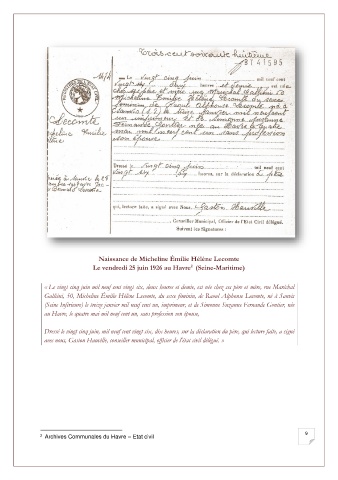 Trois cent soixante huitième
B1 41595
Le vingt cinq juin mil neuf cent
vingt six
heures et demie est née
chez ses père et mère rue Maréchal Galliéni 30
Micheline Émilie Hélène Lecomte du sexe
féminin, de Raoul Alphonse Lecomte né à
Lecomte
Dressé le vingt cinq juin mil neuf cent
vingt six heures, sur la déclaration du père
qui, lecture faite, a signé avec Nous, Gaston Hauville
Conseiller Municipal, Officier de l'état civil délégué.
Suivent les Signatures :
Naissance de Micheline Émilie Hélène Lecomte
Le vendredi 25 juin 1926 au Havre² (Seine-Maritime)
« Le vingt cinq juin mil neuf cent vingt six, deux heures et demie, est née chez ses père et mère, rue Maréchal
Galliéni, 30, Micheline Émilie Hélène Lecomte, du sexe féminin, de Raoul Alphonse Lecomte, né à Sanvic
(Seine Inférieure) le treize janvier mil neuf cent un, imprimeur, et de Simonne Suzanne Fernande Gontier, née
au Havre, le quatre mai mil neuf cent un, sans profession son épouse,
Dressé le vingt cinq juin, mil neuf cent vingt six, dix heures, sur la déclaration du père, qui lecture faite, a signé
avec nous, Gaston Hauville, conseiller municipal, officier de l'état civil délégué. »
² Archives Communales du Havre – Etat civil
9